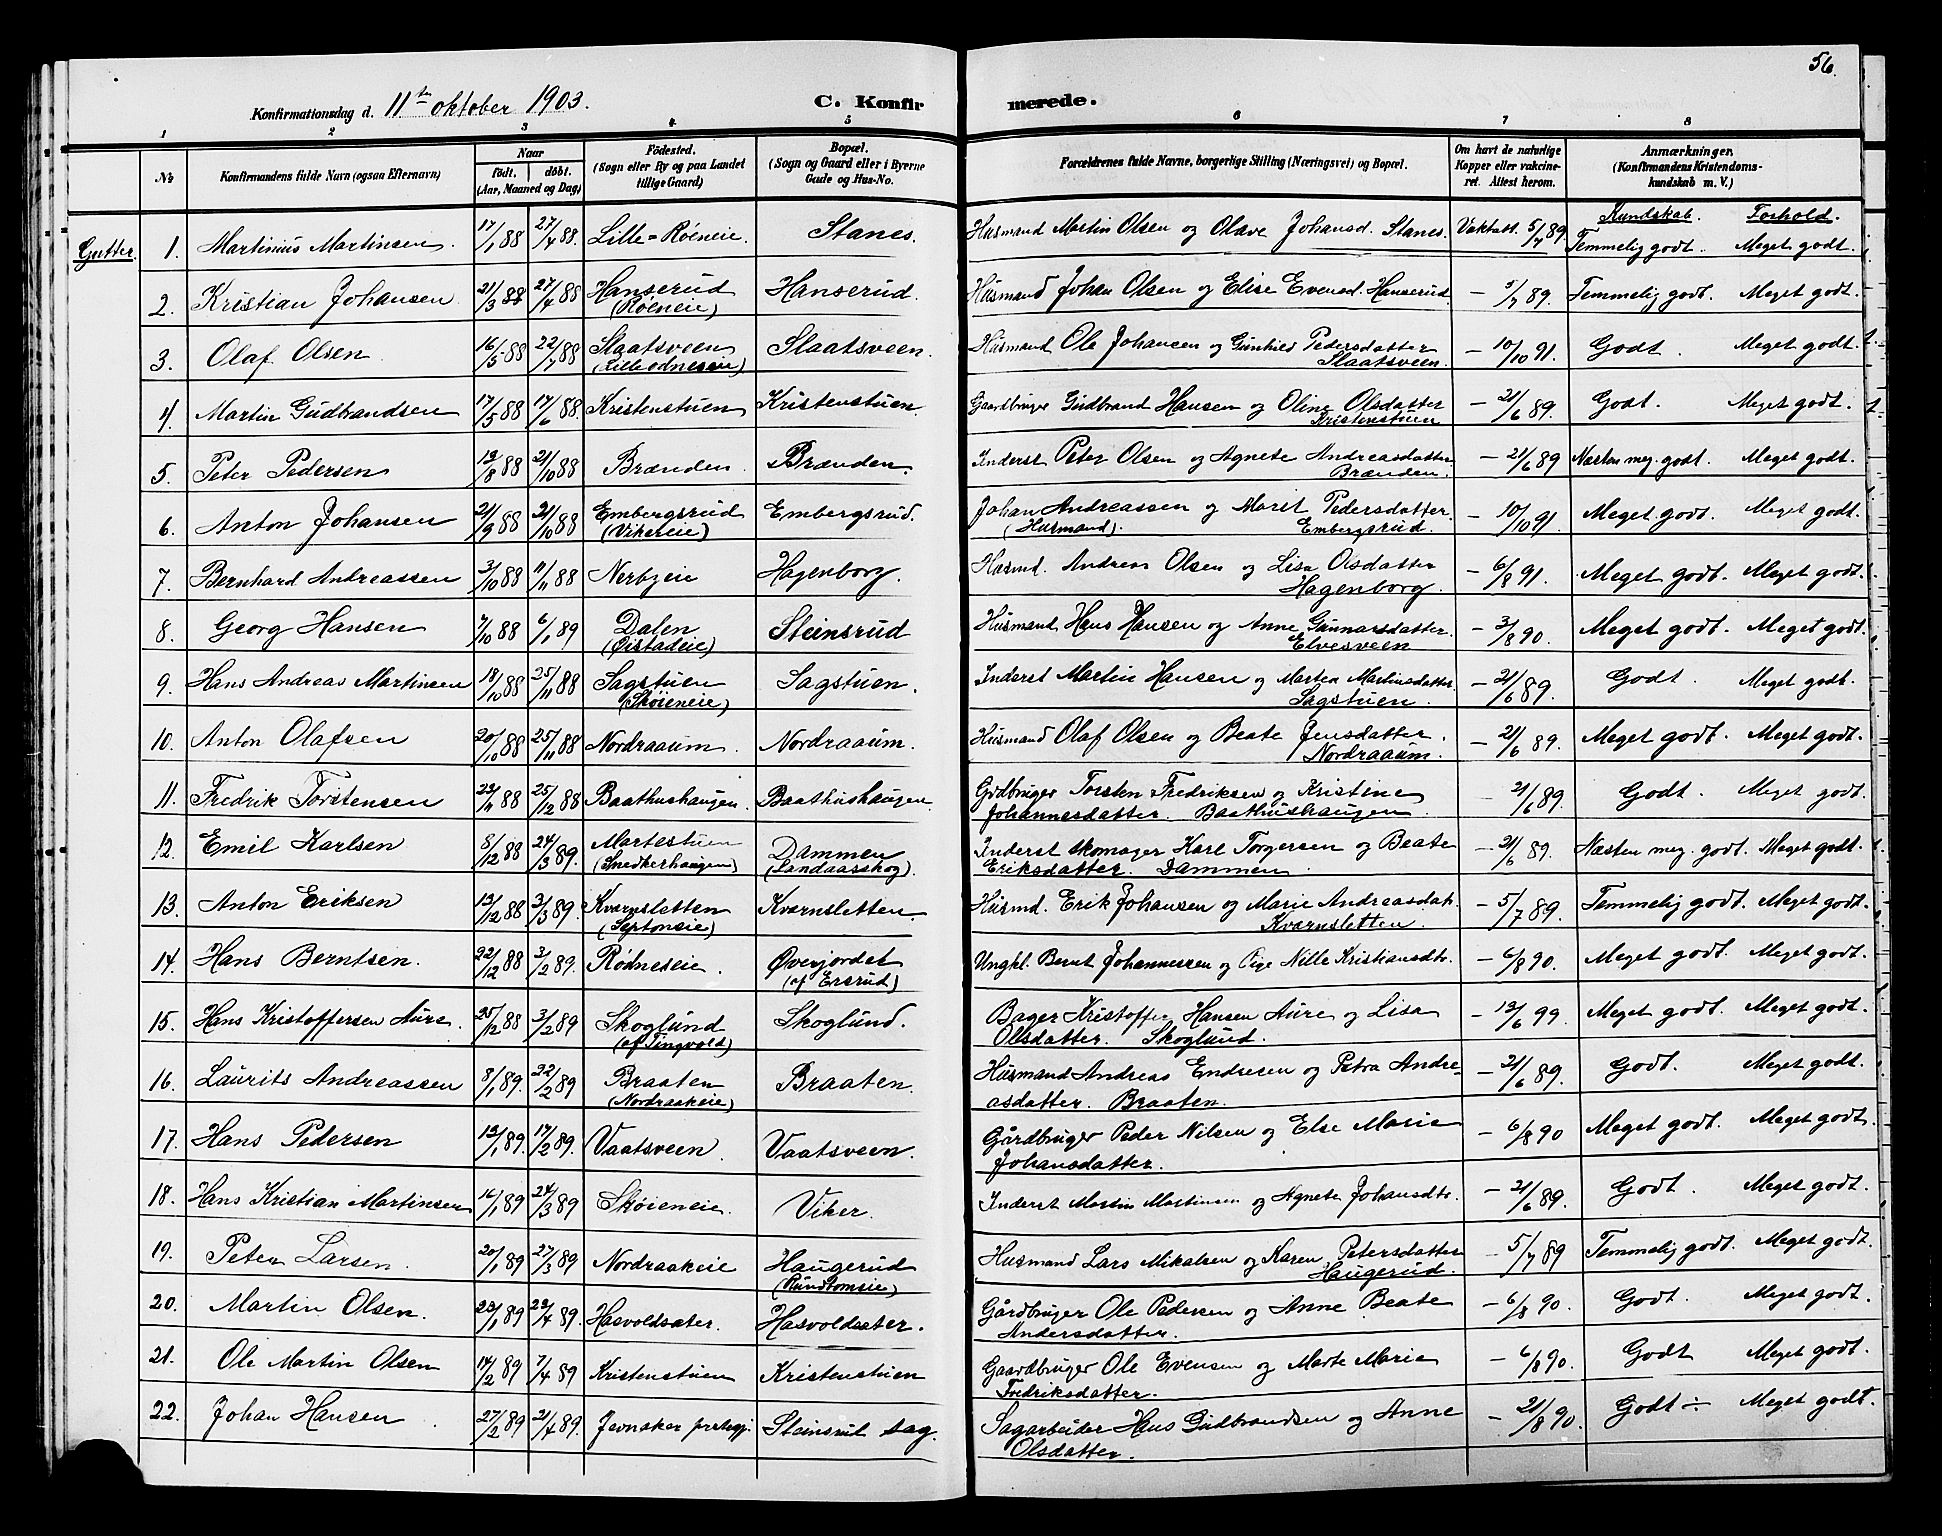 56.
Konfirmationsdag d. 11te oktober 1903. C. Konfirmerede.
1 2 3 4 5 6 7 8
No Konfirmandens fulde Navn (ogsaa Efternavn) Naar födt. döbt. (Aar, Maaned og Dag) Födested. (Sogn eller By og paa Landet tillige Gaard) Bopæl. (Sogn og Gaard eller i Byerne Gade og Hus-No. Forældrenes fulde Navne, borgerlige Stilling (Næringsvei) og Bopæl. Om havt de naturlige Kopper eller vakcineret. Attest herom. Anmærkninger. (Konfirmandens Kristendomskundskab m. V.)
Kundskab. Forhold.
Gutter. 1. Martinius Martinsen. 17/1 88 27/4 88. Lille-Röeneie. Stanes. Husmand Martin Olsen og Olave Johansd. Stanes. Vakatt. 5/7 89. Temmelig godt. Meget godt.
2. Kristian Johansen 21/3 88 27/4 88 Hanserud (Röeneie) Hanserud. Husmand Johan Olsen og Elise Evensd. Hanserud. — 5/7 89. Temmelig godt. Meget godt.
3. Olaf Olsen 16/5 88 22/7 88 Slaatsveen (Lilleodneseie) Slaatsveen. Husmand Ole Johansen og Gunhild Pedersdatter
Slaatsveen. — 10/10 91. Godt. Meget godt.
4. Martin Gudbrandsen 17/5 88 17/6 88. Kristenstuen Kristenstuen. Gaardbruger Gudbrand Hansen og Oline Olsdatter
Kristenstuen — 21/6 89. Godt. Meget godt.
5. Peter Pedersen 13/8 88 21/10 88 Brænden. Brænden. Inderst Peter Olsen og Agnete Andreasdatter
Brænden. — 21/6 89 Næsten meg. godt. Meget godt.
6. Anton Johansen 21/9 88 21/10 88 Embergsrud (Vikereie) Embergsrud. Johan Andreassen og Maret Pedersdatter.
(Husmand). Embergsrud. — 10/10 91. Meget godt. Meget godt.
7. Bernhard Andreassen 3/10 88 11/11 88 Nerbyeie Hagenborg. Husmd. Andreas Olsen og Lisa Olsdatter
Hagenborg. — 6/8 91. Meget godt. Meget godt.
8. Georg Hansen 7/10 88 6/1 89 Dalen (Øistadeie) Steinsrud Husmand Hans Hansen og Anne Gunnarsdatter.
Elvesveen — 3/8 90. Meget godt. Meget godt.
9. Hans Andreas Martinsen 18/10 88 25/11 88 Sagstuen (Sköieneie) Sagstuen. Inderst Martin Hansen og Martea Martinsdatter.
Sagstuen. — 21/6 89. Godt. Meget godt.
10. Anton Olafsen 20/10 88 25/11 88 Nordraaum. Nordraaum. Husmand Olaf Olsen og Beate Jensdatter.
Nordraaum. — 21/6 89. Meget godt. Meget godt.
11. Fredrik Torstensen 23/11 88 25/12 88 Baathushaugen. Baathushaugen. Gdbruger Torsten Fredriksen og Kristine
Johannesdatter. Baathushaugen — 21/6 89. Godt. Meget godt.
12. Emil Karlsen 8/12 88 24/3 89. Martestuen (Snedkerhaugen) Dammen (Landaasskog). Inderst skomager Karl Torgersen og Beate
Eriksdatter. Dammen. — 21/6 89. Næsten meg. godt. Meget godt.
13. Anton Eriksen 13/12 88 3/3 89. Kværnsletten (Septoneie) Kværnsletten Husmd. Erik Johansen og Marie Andreasdat.
Kværnsletten. — 5/7 89. Temmelig godt. Meget godt.
14. Hans Berntsen. 22/12 88 3/2 89. Rödneseie. Øverjordet (af Ersrud) Ungkl. Bernt Johannessen og Pige Nille Kristiansdtr. — 6/8 90. Meget godt. Meget godt.
15. Hans Kristoffersen Aure. 25/12 88 3/2 89 Skoglund (af Tingvold) Skoglund. Bager Kristoffer Hansen Aure og Lisa
Olsdatter. Skoglund. — 13/6 99. Meget godt. Meget godt.
16. Laurits Andreassen 8/1 89. 22/2 89 Braaten (Nordraakeie) Braaten. Husmand Andreas Endresen og Petra Andre-
asdatter. Braaten. — 21/6 89. Godt. Meget godt.
17. Hans Pedersen 13/1 89. 17/2 89. Vaatsveen. Vaatsveen. Gårdbruger Peder Nilsen og Else Marie
Johansdatter. — 6/8 90 Meget godt. Meget godt.
18. Hans Kristian Martinsen 16/1 89 24/3 89 Sköieneie. Viker. Inderst Martin Martinsen og Agnete Johansdtr. — 21/6 89. Godt. Meget godt.
19. Peter Larsen. 20/1 89 27/3 89 Nordraakeie Haugerud (Rundtomeie) Husmand Lars Mikalsen og Karen Petersdatter
Haugerud. — 5/7 89 Temmelig godt. Meget godt.
20. Martin Olsen. 23/1 89 23/4 89. Hasvoldsæter. Hasvoldsæter. Gårdbruger Ole Pedersen og Anne Beate
Andersdatter. — 6/8 90. Godt. Meget godt.
21. Ole Martin Olsen 14/2 89 7/4 89 Kristenstuen Kristenstuen Gaardbruger Ole Evensen og Marte Marie
Fredriksdatter. — 6/8 90. Godt Meget godt.
22. Johan Hansen 27/2 89 21/4 89. Jevnaker prstegj. Steinsrud sag. Sagarbeider Hans Gudbrandsen og Anne
Olsdatter. — 21/8 90. Godt ÷ Meget godt.